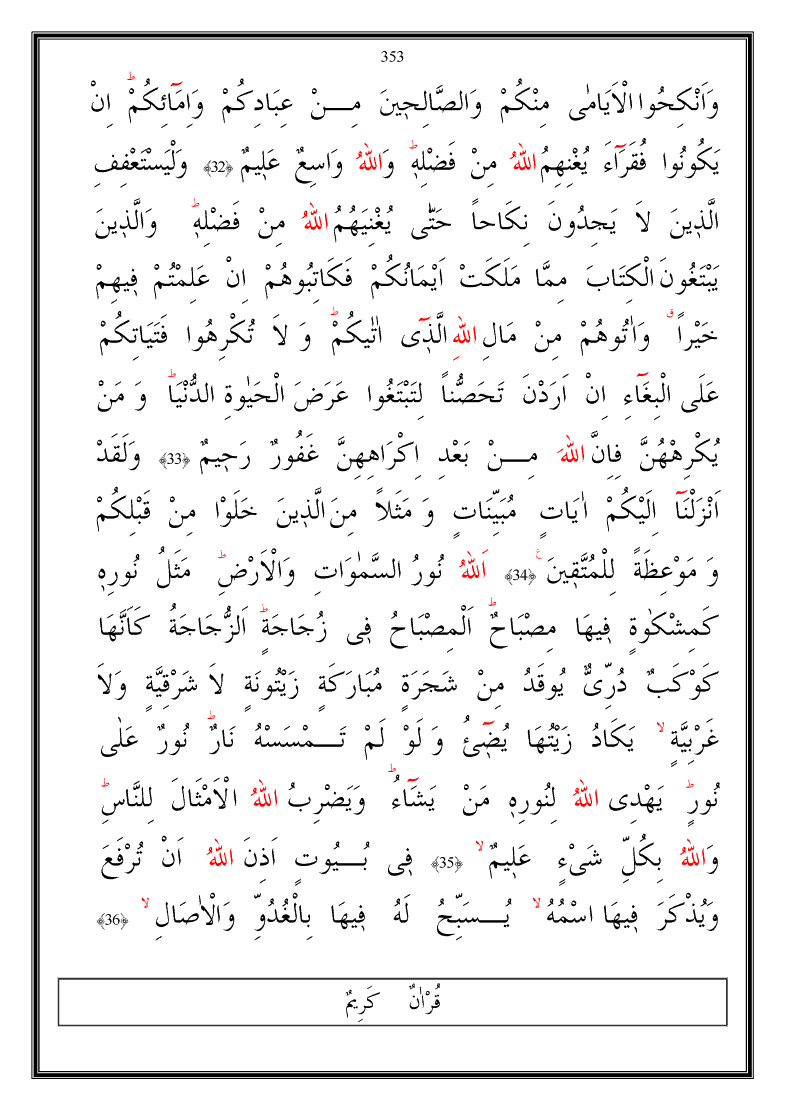 353
وَاَنْكِحُوا الْاَيَامٰى مِنْكُمْ وَالصَّالِحٖينَ مِـــنْ عِبَادِكُمْ وَاِمَٓائِكُمْۜ اِنْ
يَكُونُوا فُقَرَٓاءَ يُغْنِهِمُ اللّٰهُ مِنْ فَضْلِهٖۜ وَاللّٰهُ وَاسِعٌ عَلٖيمٌ ﴿32﴾ وَلْيَسْتَعْفِفِ
الَّذٖينَ لاَ يَجِدُونَ نِكَاحاً حَتّٰى يُغْنِيَهُمُ اللّٰهُ مِنْ فَضْلِهٖۜ وَالَّذٖينَ
يَبْتَغُونَ الْكِتَابَ مِمَّا مَلَكَتْ اَيْمَانُكُمْ فَكَاتِبُوهُمْ اِنْ عَلِمْتُمْ فٖيهِمْ
خَيْراًۗ وَاٰتُوهُمْ مِنْ مَالِ اللّٰهِ الَّذٖٓى اٰتٰيكُمْۜ وَ لاَ تُكْرِهُوا فَتَيَاتِكُمْ
عَلَى الْبِغَٓاءِ اِنْ اَرَدْنَ تَحَصُّناً لِتَبْتَغُوا عَرَضَ الْحَيٰوةِ الدُّنْيَاۜ وَ مَنْ
يُكْرِهْهُنَّ فَاِنَّ اللّٰهَ مِـــنْ بَعْدِ اِكْرَاهِهِنَّ غَفُورٌ رَحٖيمٌ ﴿33﴾ وَلَقَدْ
اَنْزَلْنَٓا اِلَيْكُمْ اٰيَاتٍ مُبَيِّنَاتٍ وَ مَثَلاً مِنَ الَّذٖينَ خَلَوْا مِنْ قَبْلِكُمْ
وَ مَوْعِظَةً لِلْمُتَّقٖينَࣖ ﴿34﴾ اَللّٰهُ نُورُ السَّمٰوَاتِ وَالْاَرْضِۜ مَثَلُ نُورِهٖ
كَمِشْكٰوةٍ فٖيهَا مِصْبَاحٌۜ اَلْمِصْبَاحُ فٖى زُجَاجَةٍۜ اَلزُّجَاجَةُ كَاَنَّهَا
كَوْكَبٌ دُرِّىٌّ يُوقَدُ مِنْ شَجَرَةٍ مُبَارَكَةٍ زَيْتُونَةٍ لاَ شَرْقِيَّةٍ وَلاَ
غَرْبِيَّةٍۙ يَكَادُ زَيْتُهَا يُضٖٓئُ وَ لَوْ لَمْ تَـــمْسَسْهُ نَارٌۜ نُورٌ عَلٰى
نُورٍۜ يَهْدِى اللّٰهُ لِنُورِهٖ مَنْ يَشَٓاءُۜ وَيَضْرِبُ اللّٰهُ الْاَمْثَالَ لِلنَّاسِۜ
وَاللّٰهُ بِكُلِّ شَىْءٍ عَلٖيمٌۙ ﴿35﴾ فٖى بُـــيُوتٍ اَذِنَ اللّٰهُ اَنْ تُرْفَعَ
وَيُذْكَرَ فٖيهَا اسْمُهُۙ يُـــسَبِّحُ لَهُ فٖيهَا بِالْغُدُوِّ وَالْاٰصَالِۙ ﴿36﴾
قُرْاٰنٌ كَرِيمٌ